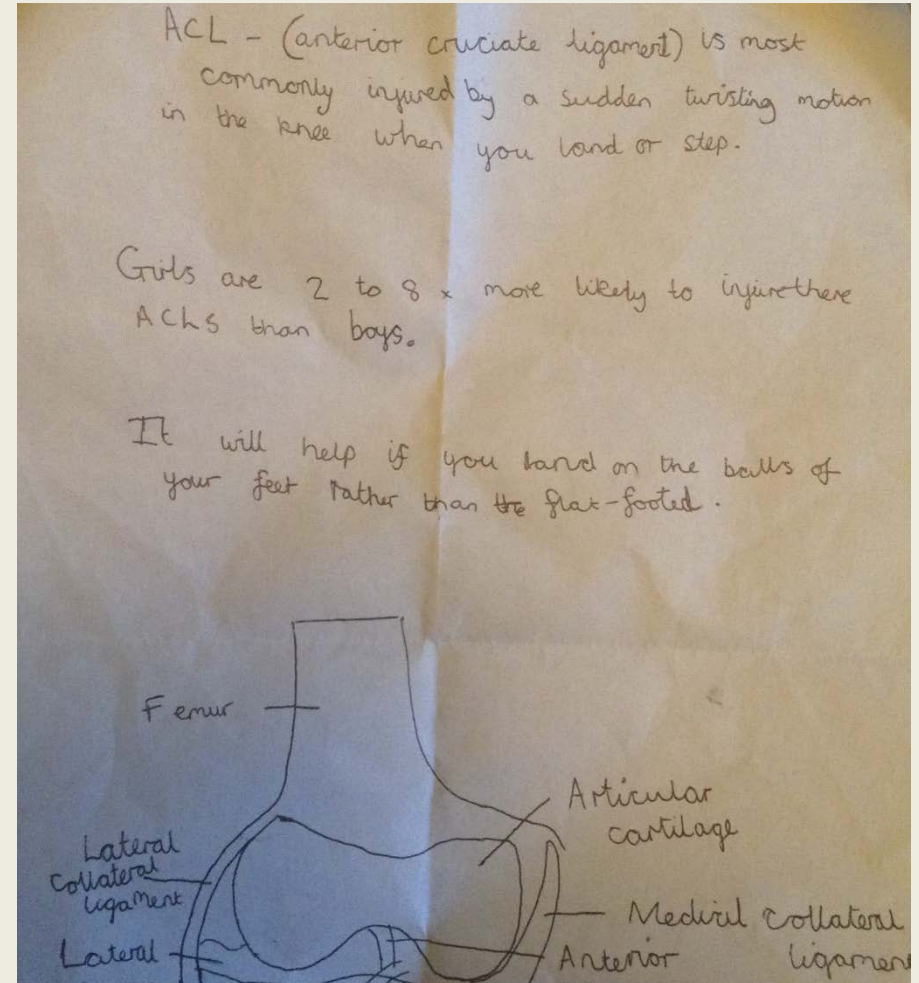 ACL - (anterior cruciate ligament) is most
commonly injured by a sudden twisting motion
in the knee when you land or step.
Girls are 2 to 8 x more likely to injure there
ACLS than boys.
It will help if you land on the balls of
your feet rather than the flat-footed.
Femur
Articular
cartilage
Lateral
Collateral
ligament
Medical Collateral
ligament
Lateral
Anterior